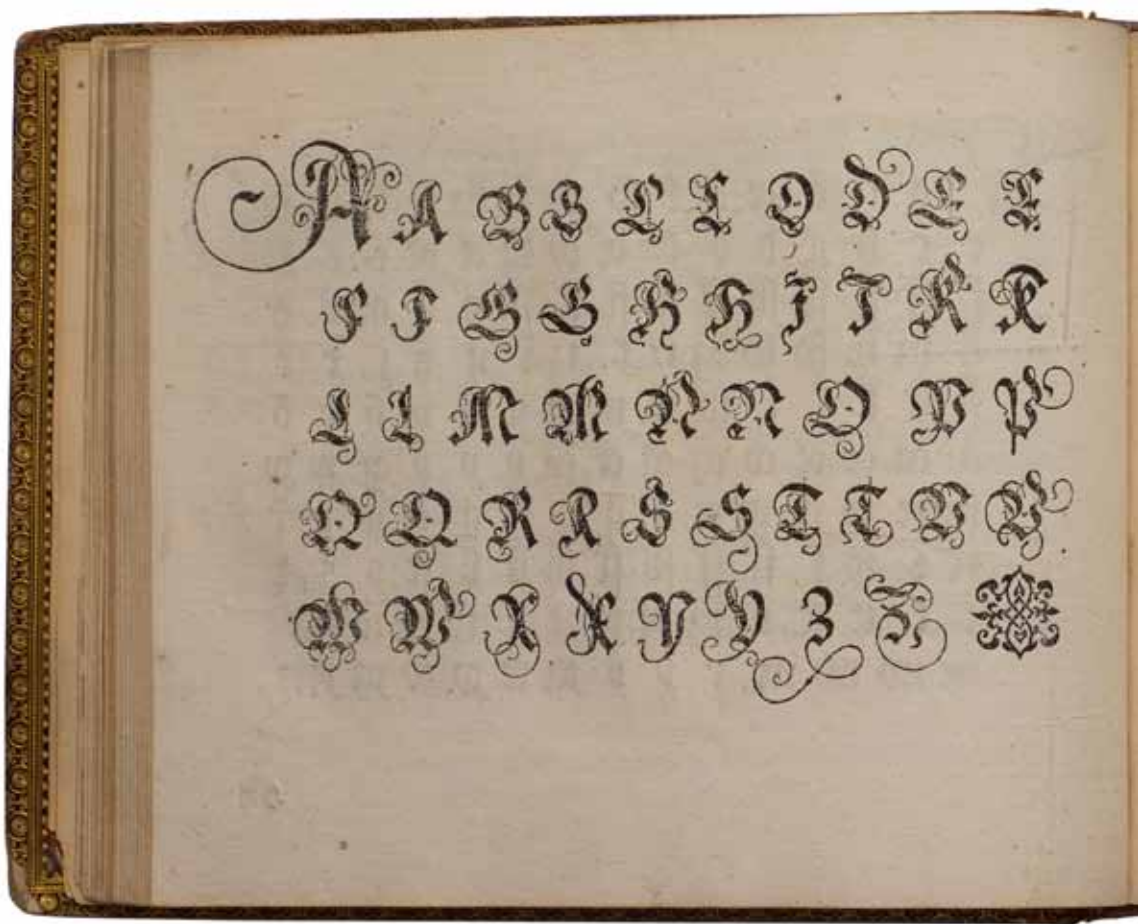 A A B B C C D D E E
F F G G H H I I K K
L L M M N N O P P
Q Q R R S S T T V V
W W X X Y Y Z Z